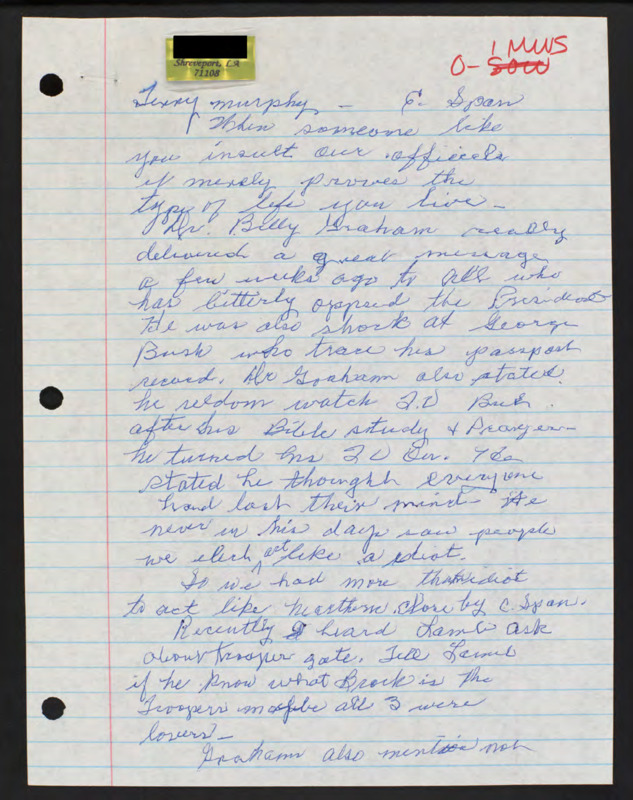 Shreveport, LA
71108
1 MWS
O- SOW
Terry murphy - C. Span
When someone like
you insult our officeals
it merely proves the
type of life you live -
Dr. Billy Graham really
delivered a great message
a few weeks ago to all who
has bitterly oppsed the President
He was also shock at George
Bush who trace his passport
record. Dr Graham also stated
he seldom watch T.V But
after his Bible study & Prayer -
he turned his T V On. He
stated he thought everyone
had lost their mind - He
never in his days saw people
we elect act like a idiot.
So we had more than idiot
to act like by C. Span.
Recently I heard Lamb ask
about trooper gate. Tell Lamb
if he know what Brock is the
Troopers maybe all 3 were
lovers -
Graham also mention not